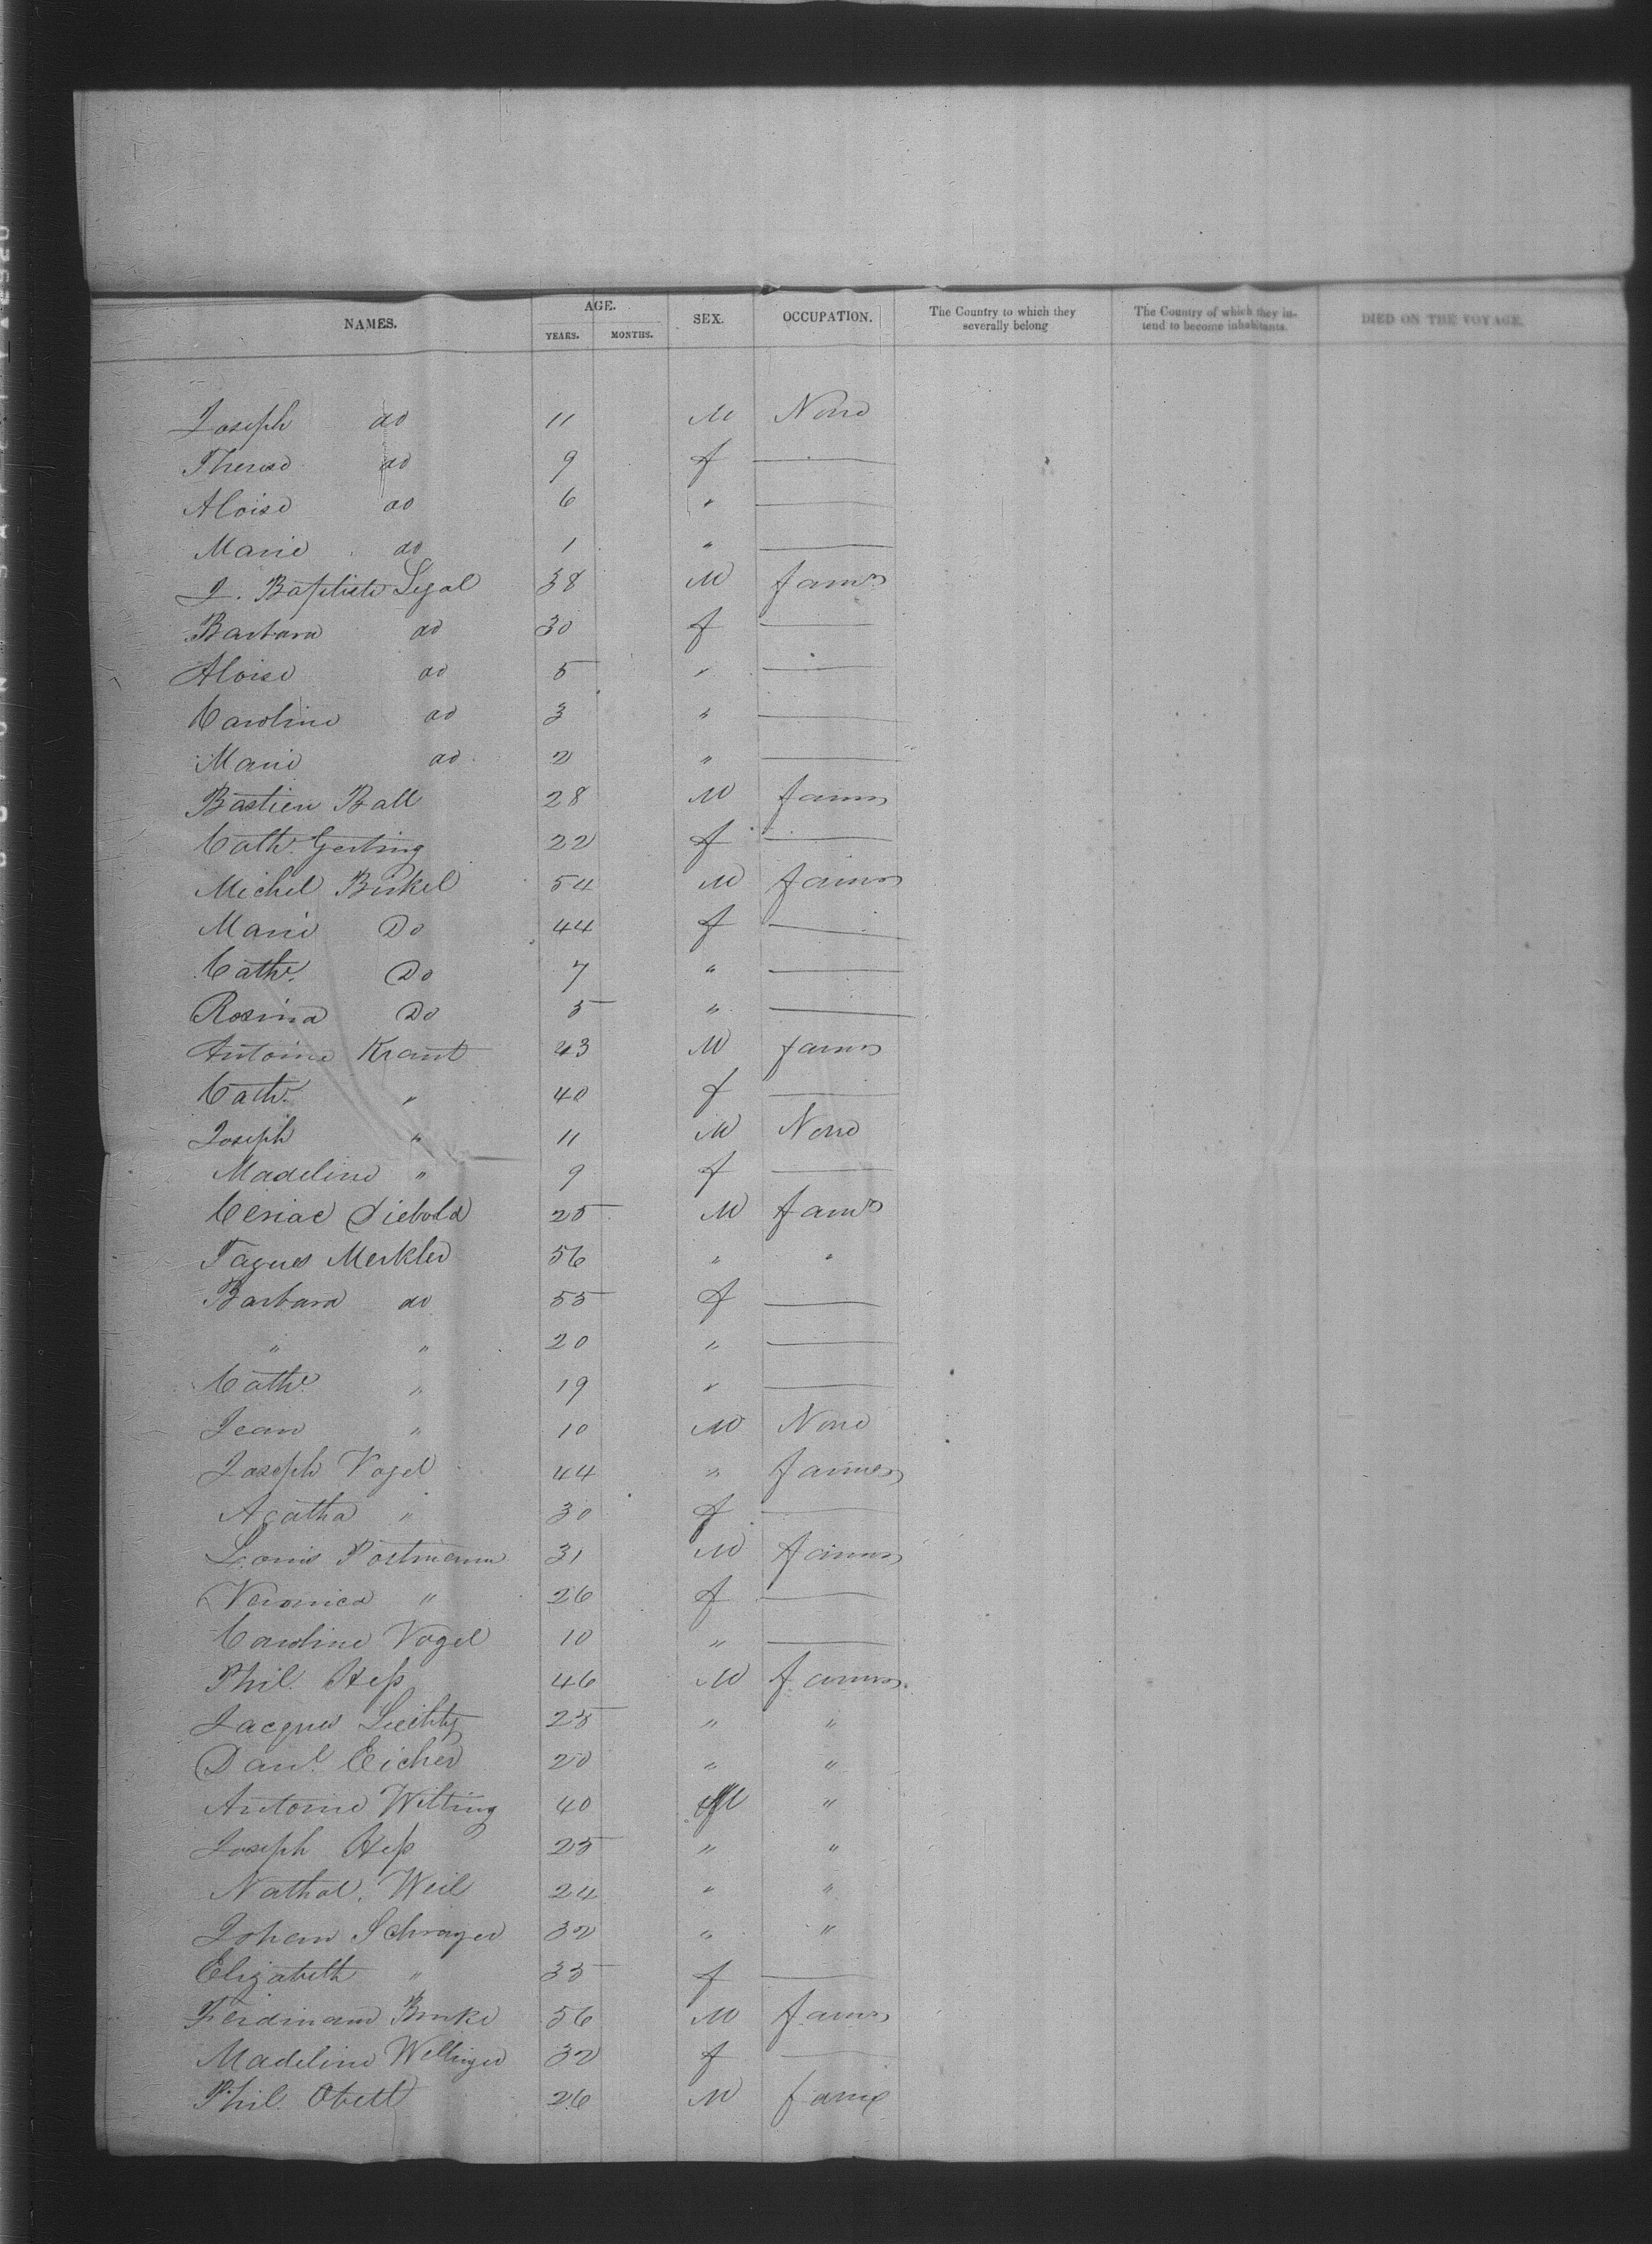 NAMES. AGE. YEARS. MONTHS. SEX. OCCUPATION. The Country to which they severally belong The Country of which they intend to become inhabitants. DIED ON THE VOYAGE.
Joseph do 11 M None
Therese do 9 f —
Aloise do 6 " —
Marie do 1 " —
J. Baptiste Segal 38 M farmr
Barbara do 30 f —
Aloise do 5 " —
Caroline do 3 " —
Marie do 2 " —
Bastien Ball 28 M farmr
Cath. Gerling 22 f —
Michel Birkel 54 M farmr
Marie Do 44 f —
Cathe. Do 7 " —
Rosina Do 5 " —
Antoine Kraut 43 M farmr
Cathe. " 40 f —
Joseph " 11 M None
Madeline " 9 f —
Diebold 25 M farmr
Merkler 56 " "
Barbara do 55 f —
" " 20 " —
Cathe. " 19 " —
Jean " 10 M None
Joseph Vogel 44 " farmer
Agatha " 30 f —
Louis Postmann 31 M farmer
Veronica " 26 f —
Caroline Vogel 10 " —
Phil. Hess 46 M farmer
Jacques Liechty 25 " "
Danl. Eicher 20 " "
Antoine Wilting 40 M "
Joseph Hess 25 " "
Nathal. Weil 24 " "
Johan 32 " "
Elizabeth " 35 f —
Ferdinand 56 M farmr
Madeline 32 f —
Phil. 26 M farme